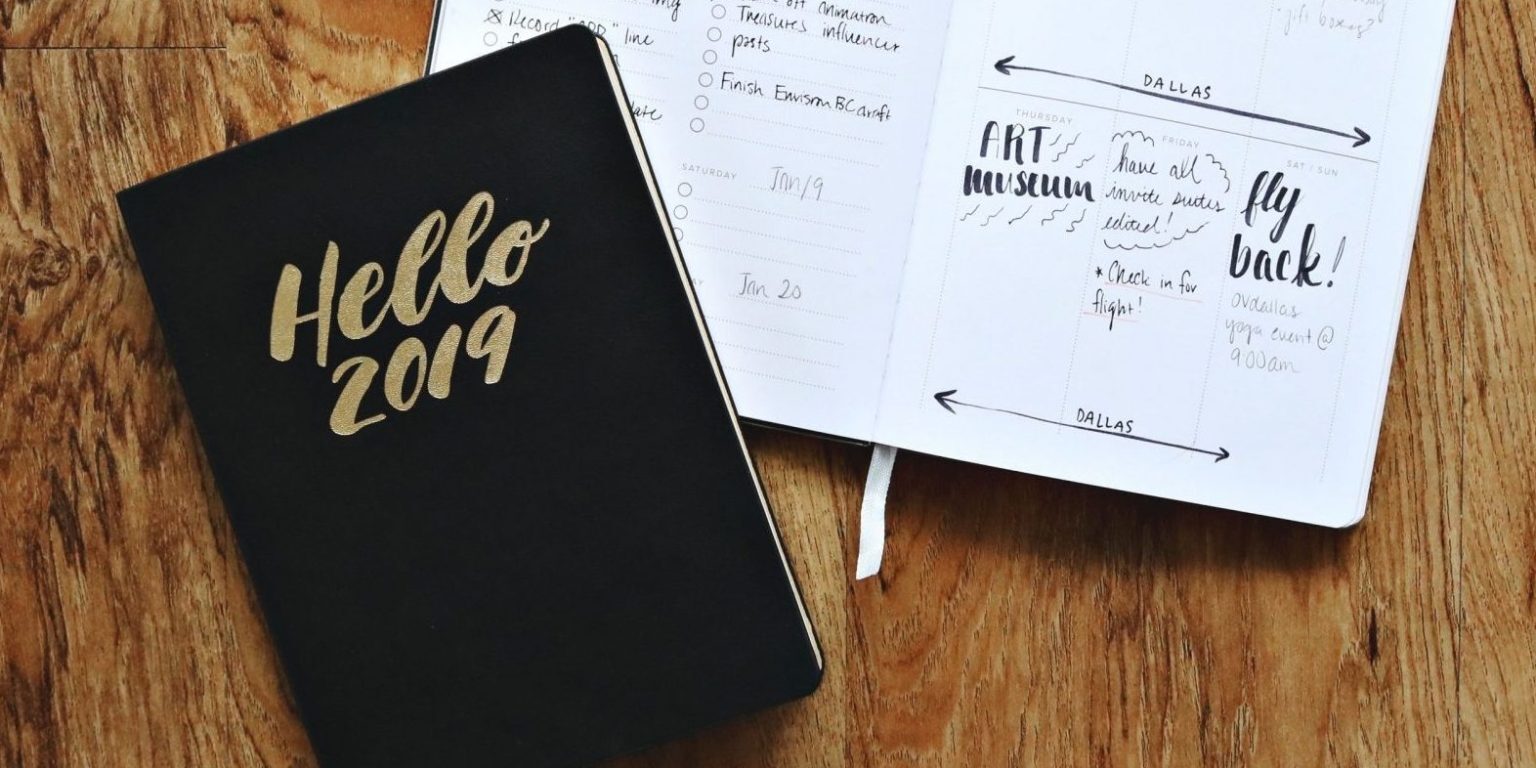 Hello
2019
Record "APP" line
late
animation
Treasures influencer
posts
Finish Envision BC draft
SATURDAY Jan 19
Jan 20
gift boxes?
DALLAS
THURSDAY
ART
museum
FRIDAY
have all
invite suites
edited!
* Check in for
flight!
SAT / SUN
fly
back!
ovdallas
yoga event @
9:00am
DALLAS